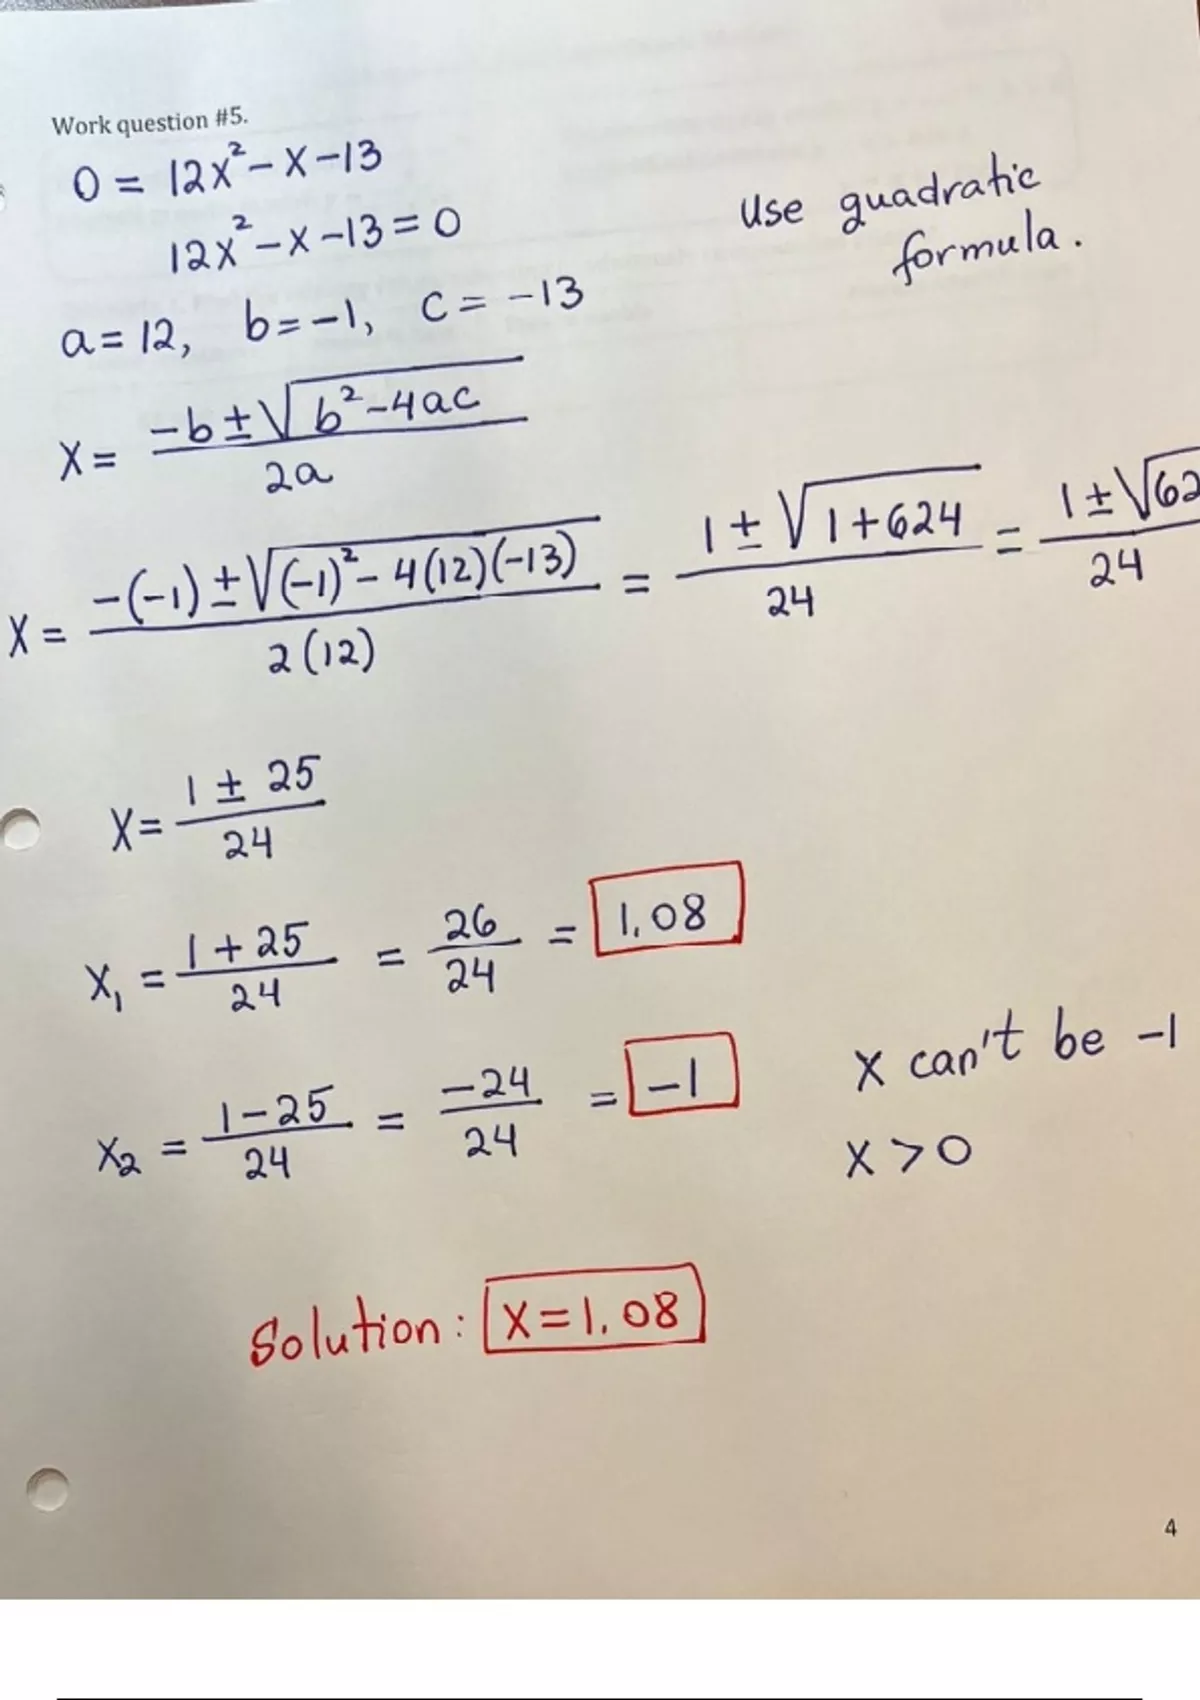 Work question #5.
0 = 12x² - x - 13
12x² - x - 13 = 0
Use quadratic
formula.
a = 12, b = -1, c = -13
x = (-b ± √(b² - 4ac)) / 2a
x = (-(-1) ± √((-1)² - 4(12)(-13))) / 2(12) = (1 ± √(1 + 624)) / 24 = (1 ± √62 / 24
x = (1 ± 25) / 24
x₁ = (1 + 25) / 24 = 26 / 24 = 1.08
x₂ = (1 - 25) / 24 = -24 / 24 = -1
x can't be -1
x > 0
Solution: x = 1.08
4